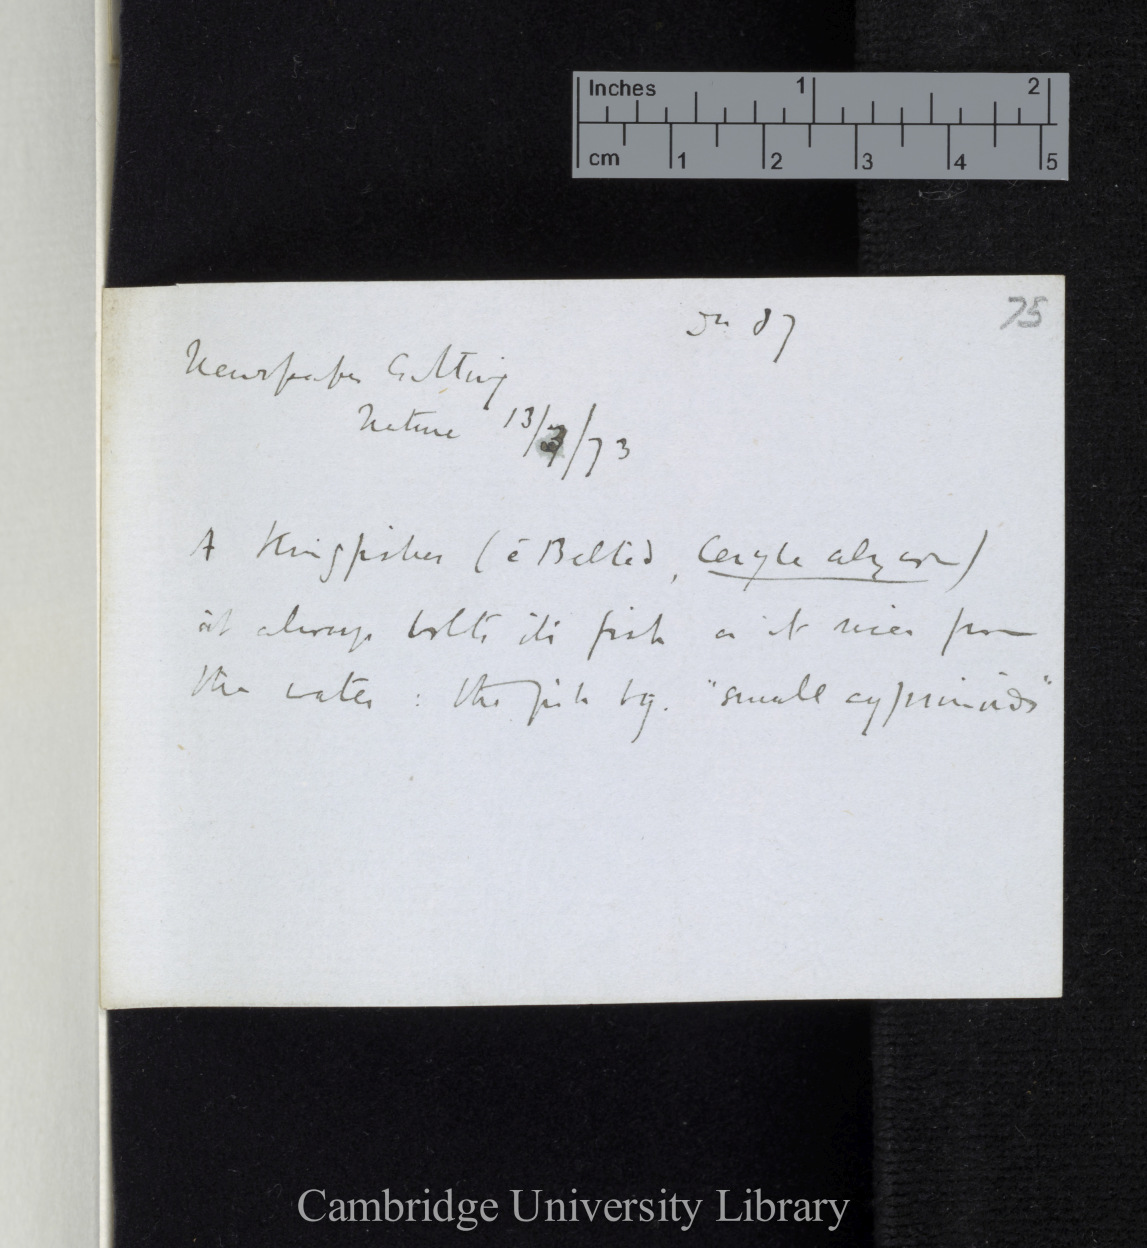 Inches 1 2
cm 1 2 3 4 5
75
87
Newspaper Cutting
Nature 13/3/73
A Kingfisher (ē Belted, Ceryle alycon)
it always bolts its fish as it rises from
the water : the fish by. "small cyprinoids"
Cambridge University Library